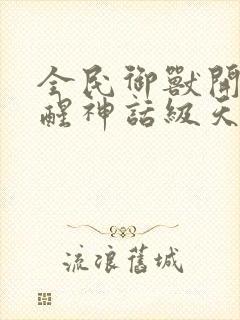 全民御獸開
醒神話級天
流浪舊城